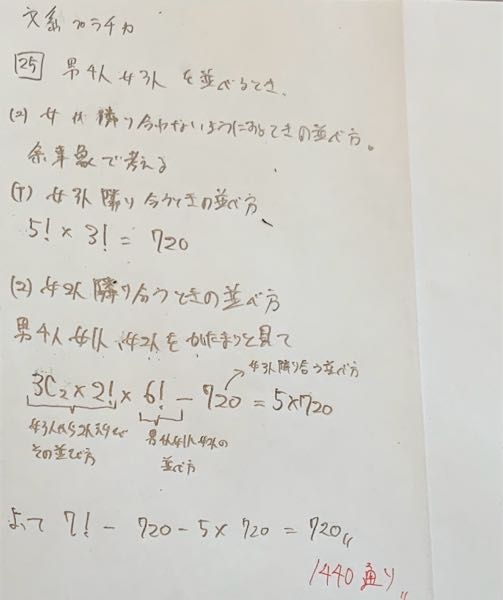 文系プラチカ
25 男4人女3人を並べるとき、
(2) 女が隣り合わないようにするときの並べ方。
余事象で考える
(1) 女3人隣り合うときの並べ方
5! × 3! = 720
(2) 女2人隣り合うときの並べ方
男4人女1人、女2人をかたまりと見て
女3人隣り合う並べ方
3C2 × 2! × 6! - 720 = 5×720
女3人から2人えらんで その並び方
男4人女1人女2人の 並べ方
よって 7! - 720 - 5× 720 = 720〃
1440通り〃